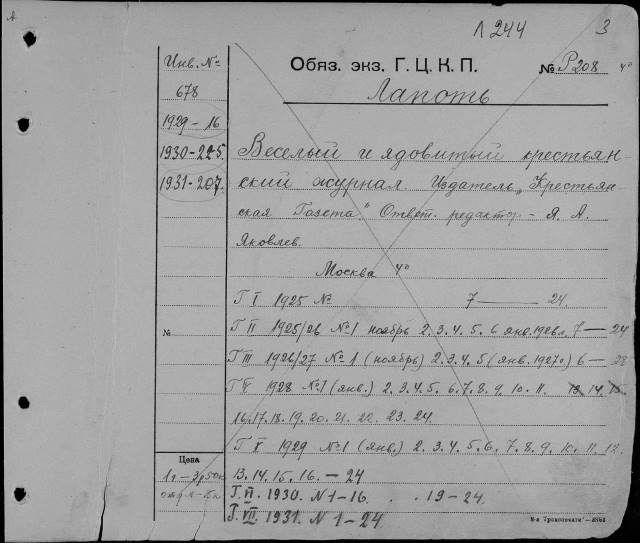 Л 244 3
Инв. № Обяз. экз. Г. Ц. К. П. № Р208 4°
678 Лапоть
1929 – 16
1930 – 225. Веселый и ядовитый крестьян-
1931 – 207. ский журнал. Издатель „Крестьян-
ская Газета." Ответ. редактор – Я. А.
Яковлев.
Москва 4°
Г I 1925 № 7 — 24.
№ Г II 1925/26 №1 ноябрь 2. 3. 4. 5. 6 янв. 1926 г. 7 — 24
Г III 1926/27 № 1 (ноябрь) 2. 3. 4. 5 (янв. 1927 г.) 6 —
1928 №1 (янв.) 2. 3. 4. 5. 6. 7. 8. 9. 10. 11. 13. 14. 15.
16. 17. 18. 19. 20. 21. 22. 23. 24.
Г V 1929 №1 (янв.) 2. 3. 4. 5. 6. 7. 8. 9. 10. 11. 12.
Цена
1 г – 3р50к 13. 14. 15. 16. – 24
Г. VI. 1930. N 1–16. . . 19–24.
Г. VII. 1931. N 1–24.